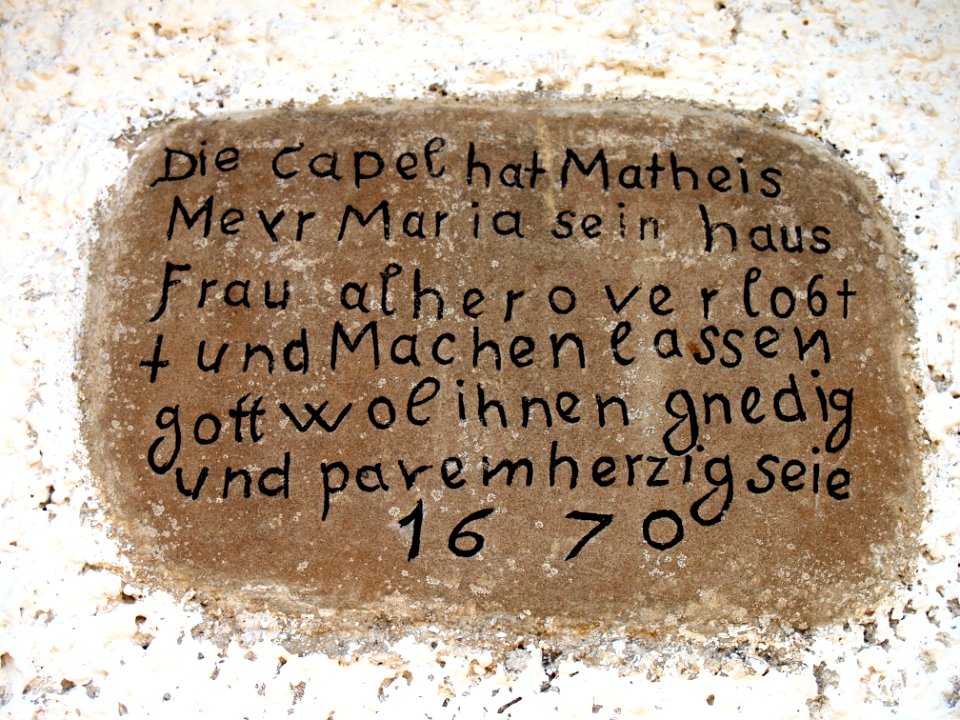 Die Capel hat Matheis
Mevr Maria sein haus
Frau alhero verlo6t
t und Machen lassen
gott wol ihnen gnedig
und paremherzig seie
16 70